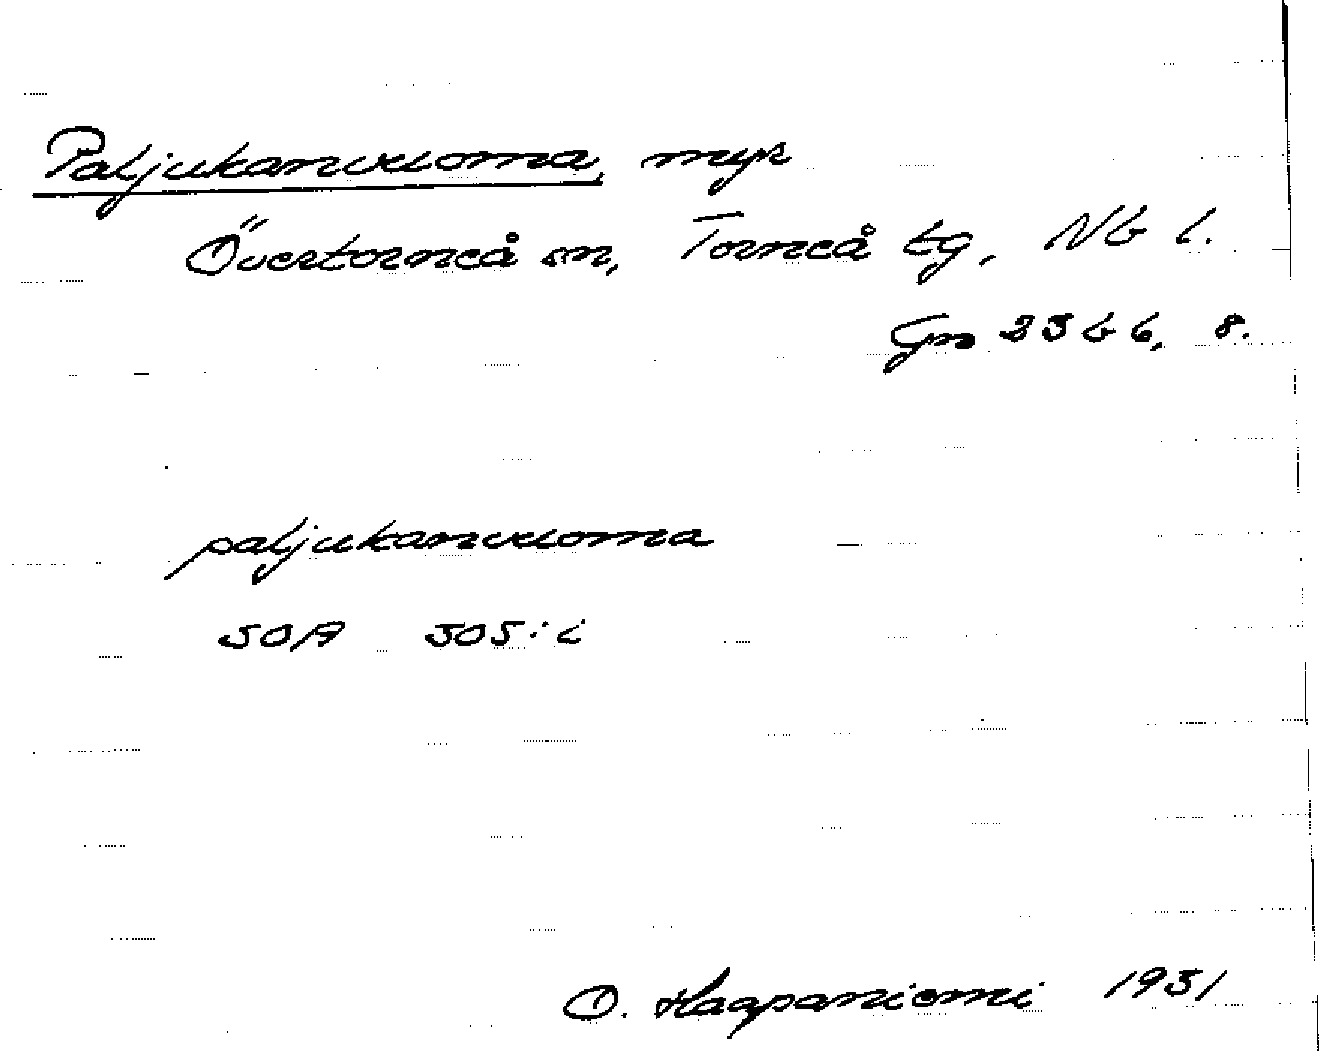 Paljukanvuoma, myr
Övertorneå sn, Torneå tg, Nb l.
Gn 23 b 6, 8.
paljukanvuoma
SOA 305: i
O. Haapaniemi 1931